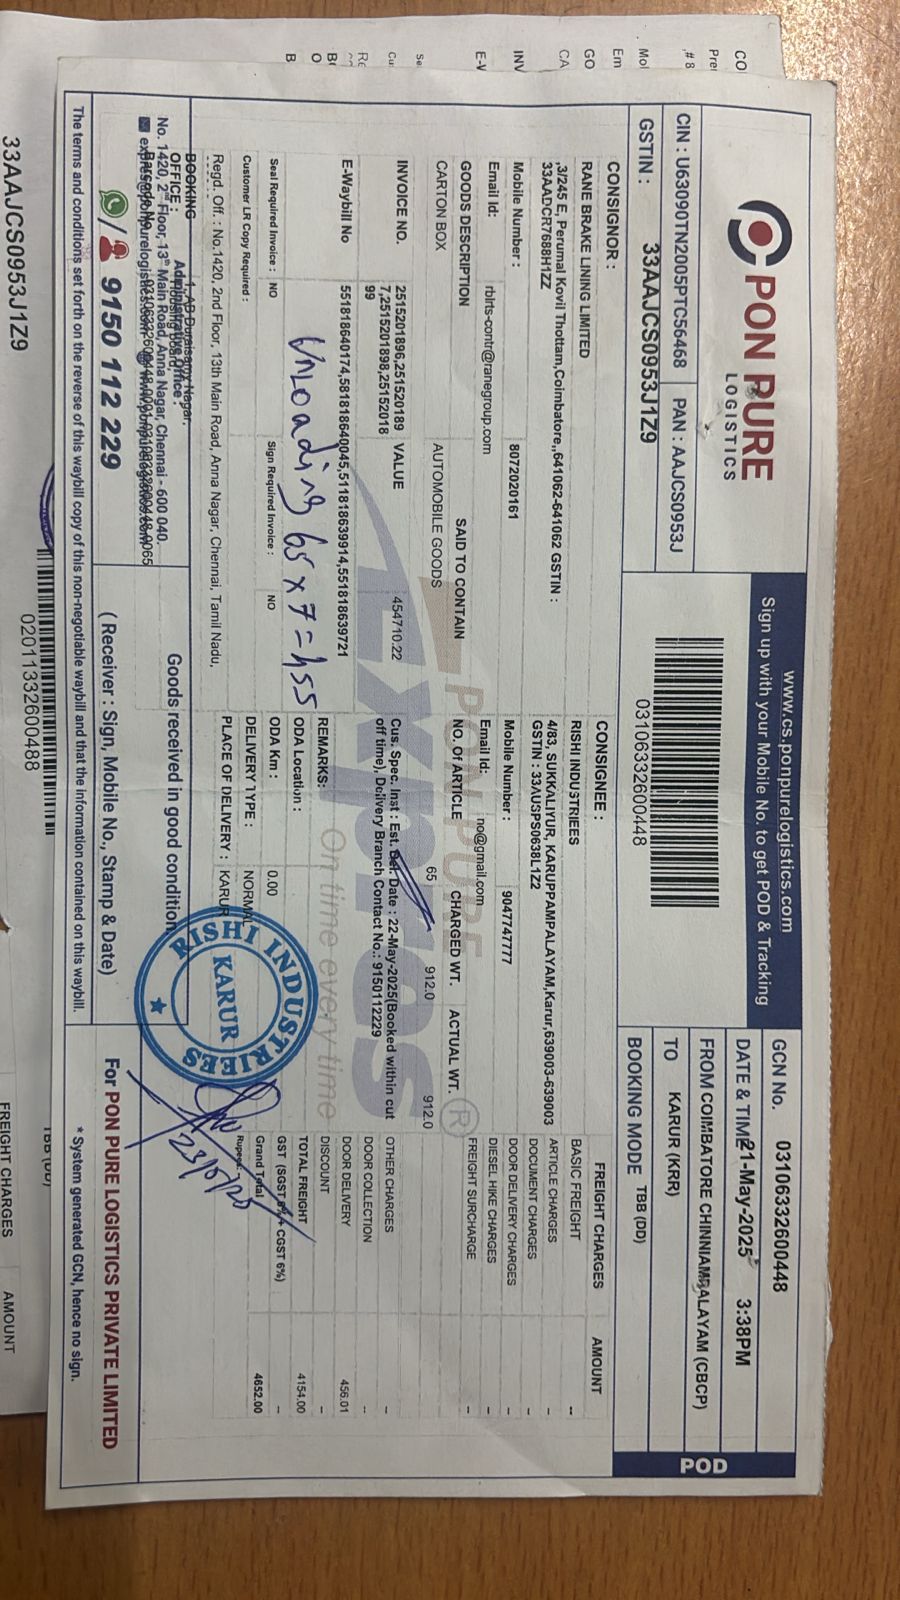 PON PURE
LOGISTICS
CIN : U63090TN2005PTC56468
PAN : AAJCS0953J
GSTIN : 33AAJCS0953J1Z9
www.cs.ponpurelogistics.com
Sign up with your Mobile No. to get POD & Tracking
03106332600448
GCN No. 03106332600448
DATE & TIME 21-May-2025 3:38PM
FROM COIMBATORE CHINNIAMPALAYAM (CBCP)
TO KARUR (KRR)
BOOKING MODE TBB (DD)
POD
CONSIGNOR :
RANE BRAKE LINING LIMITED
,3/245 E, Perumal Kovil Thottam,Coimbatore,,641062-641062 GSTIN :
33AADCR7688H1ZZ
Mobile Number : 8072020161
Email Id: rblrts-contr@ranegroup.com
CONSIGNEE :
RISHI INDUSTRIEES
4/83, SUKKALIYUR, KARUPPAMPALAYAM,Karur,639003-639003
GSTIN : 33AUSPS0638L1Z2
Mobile Number : 9047747777
Email Id: no@gmail.com
GOODS DESCRIPTION SAID TO CONTAIN NO. Of ARTICLE CHARGED WT. ACTUAL WT.
CARTON BOX AUTOMOBILE GOODS 65 912.0 912.0
INVOICE NO. 2515201896,251520189
7,2515201898,25152018
99
VALUE 454710.22
E-Waybill No 551818640174,581818640045,511818639914,551818639721
Cus. Spec. Inst : Est. Del. Date : 22-May-2025(Booked within cut
off time), Delivery Branch Contact No.: 9150112229
Unloading 65 x 7 = 455
REMARKS:
ODA Location :
ODA Km : 0.00
DELIVERY TYPE : NORMAL
PLACE OF DELIVERY : KARUR
Seal Required Invoice : NO
Sign Required Invoice : NO
Customer LR Copy Required :
PON PURE
Express
On time every time
R
FREIGHT CHARGES AMOUNT
BASIC FREIGHT --
ARTICLE CHARGES -
DOCUMENT CHARGES -
DOOR DELIVERY CHARGES -
DIESEL HIKE CHARGES -
FREIGHT SURCHARGE -
OTHER CHARGES -
DOOR COLLECTION --
DOOR DELIVERY 456.01
DISCOUNT -
TOTAL FREIGHT 4154.00
GST (SGST 6% + CGST 6%) -
Grand Total 4652.00
Rupees:
Regd. Off. : No.1420, 2nd Floor, 13th Main Road, Anna Nagar, Chennai, Tamil Nadu,
BOOKING
OFFICE :
1, AB Duraisamy Nagar,
Housing Board,
Administrative Office :
No. 1420, 2nd Floor, 13th Main Road, Anna Nagar, Chennai - 600 040.
9150 112 229
Goods received in good condition
( Receiver : Sign, Mobile No., Stamp & Date)
RISHI INDUSTRIEES
KARUR
For PON PURE LOGISTICS PRIVATE LIMITED
The terms and conditions set forth on the reverse of this waybill copy of this non-negotiable waybill and that the information contained on this waybill.
* System generated GCN, hence no sign.
33AAJCS0953J1Z9
02011332600488
FREIGHT CHARGES AMOUNT